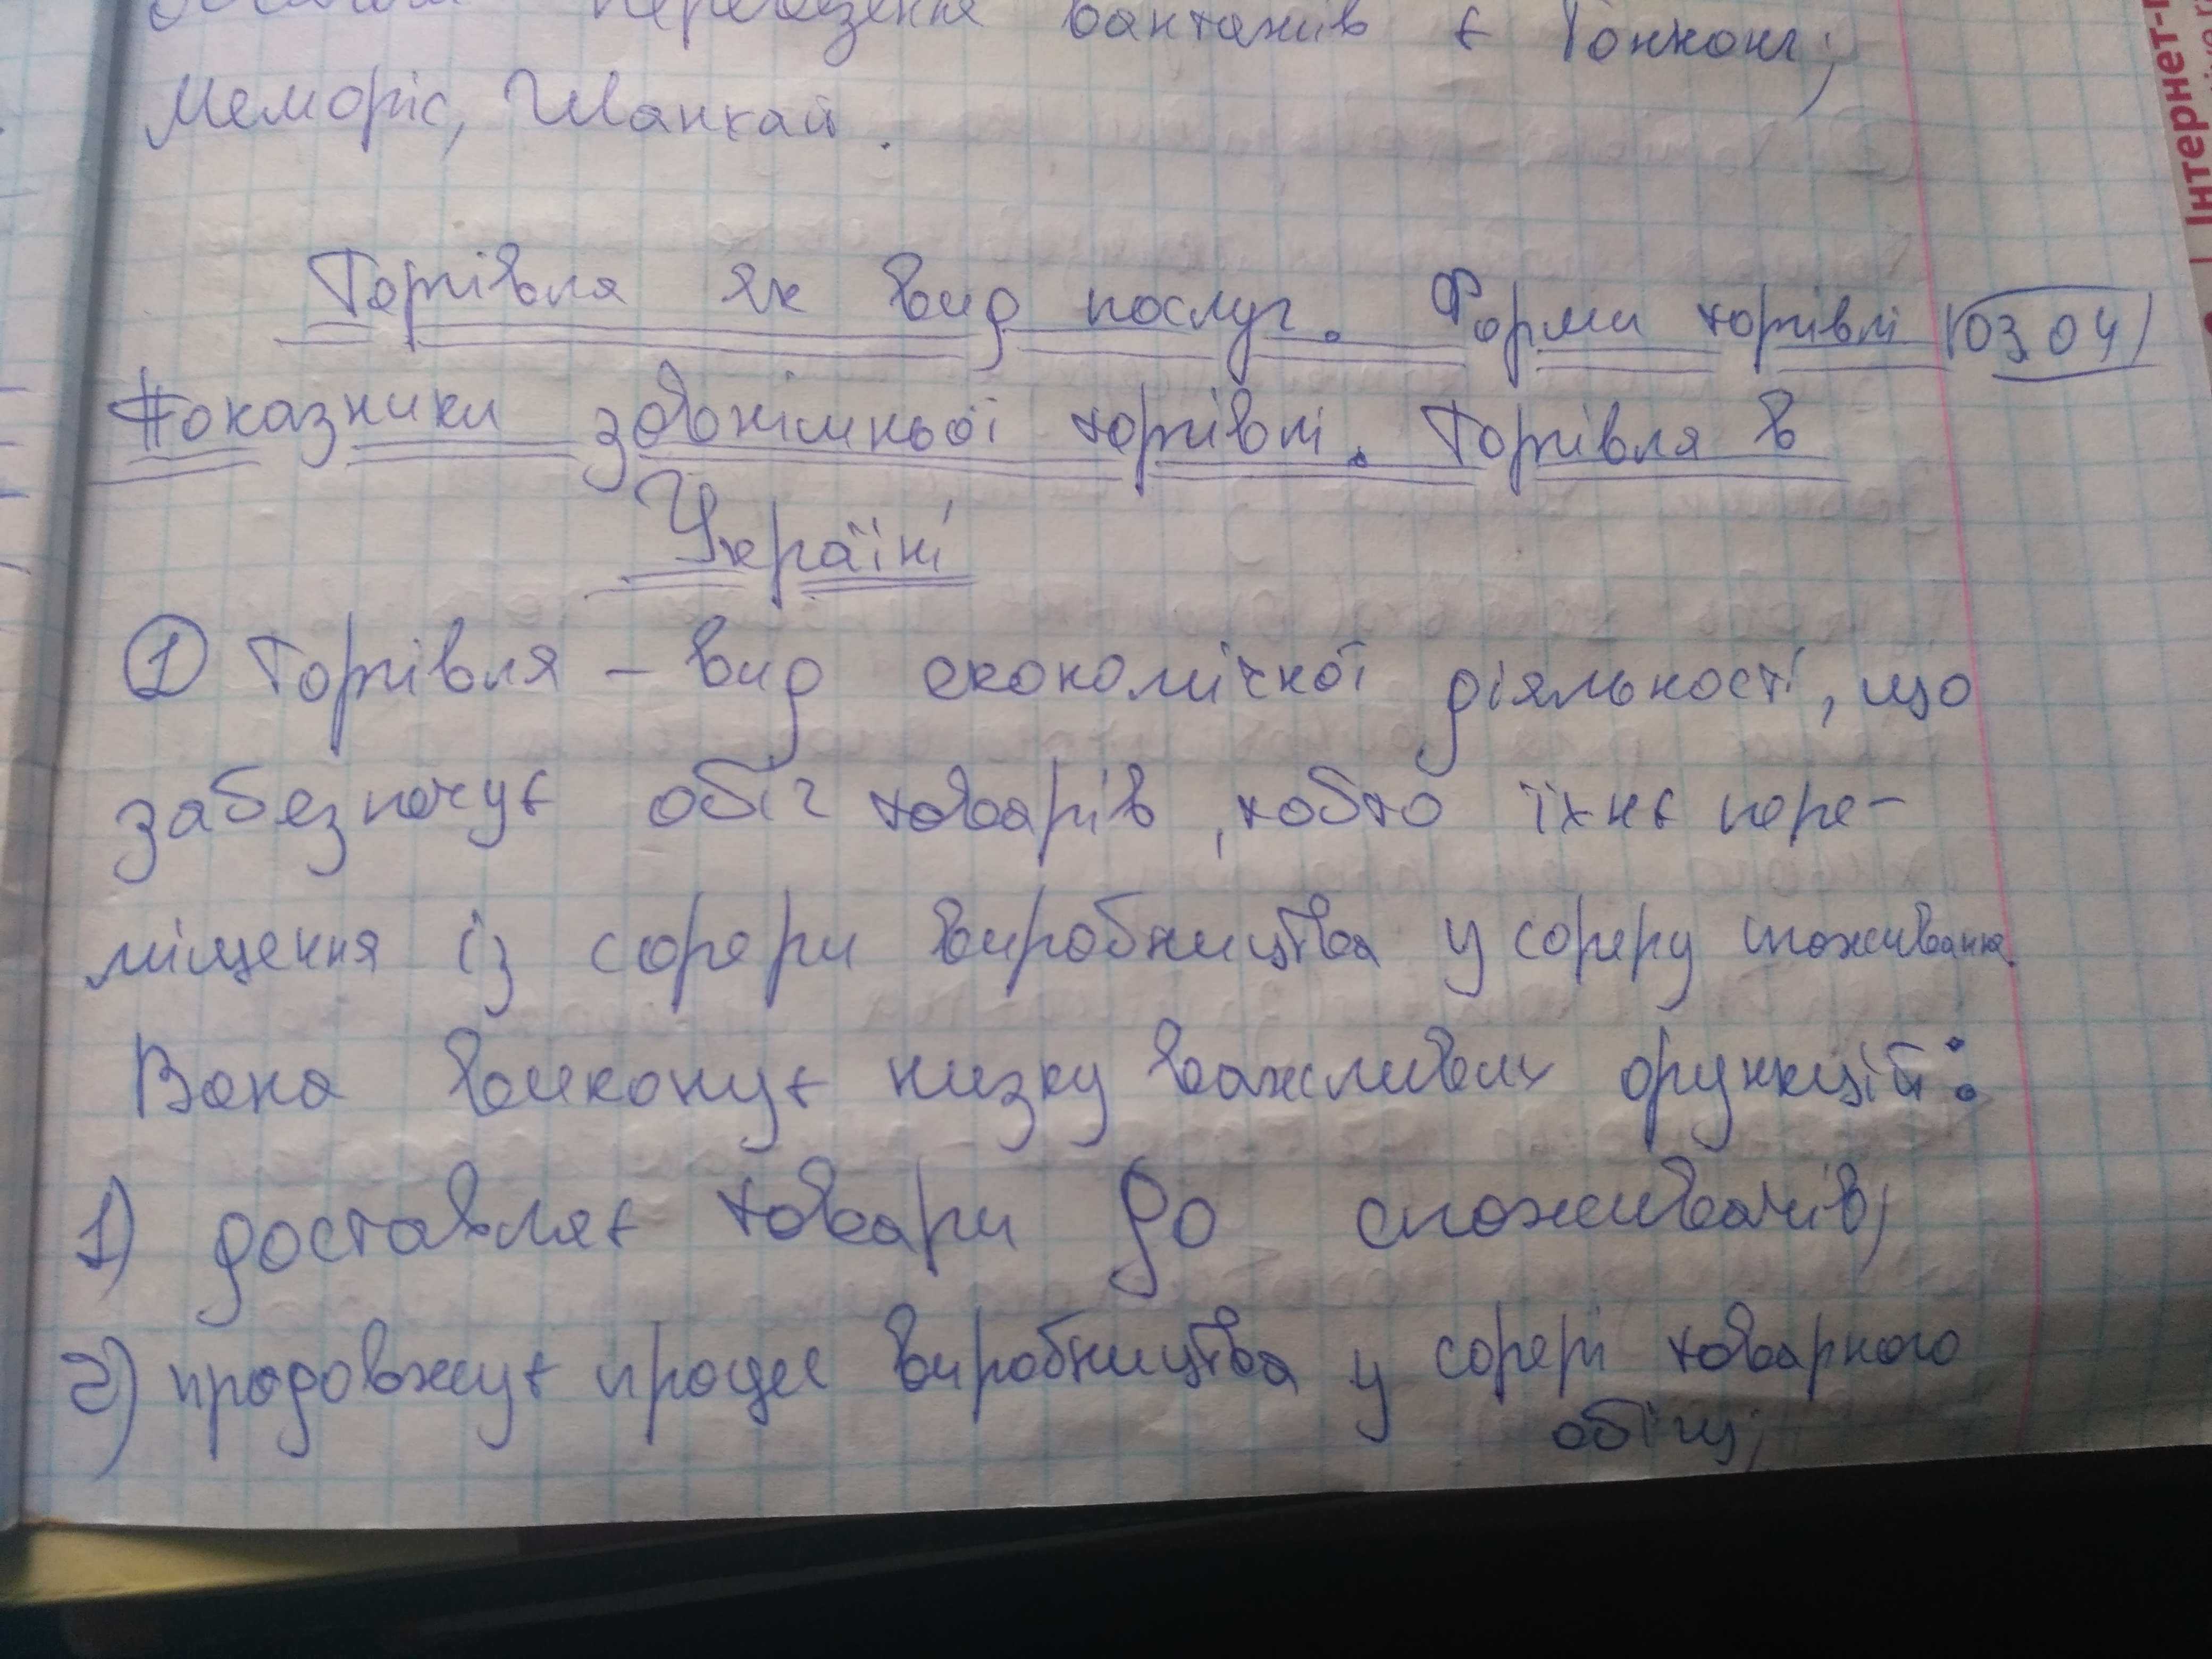 перевезення вантажів є Гонконг,
Мемфіс, Шанхай.
Торгівля як вид послуг. Форми торгівлі 03.04
Показники зовнішньої торгівлі. Торгівля в
Україні
① Торгівля – вид економічної діяльності, що
забезпечує обіг товарів, тобто їхнє пере-
міщення із сфери виробництва у сферу споживання.
Вона виконує низку важливих функцій:
1) доставляє товари до споживачів;
2) продовжує процес виробництва у сфері товарного
обігу;
Інтернет-